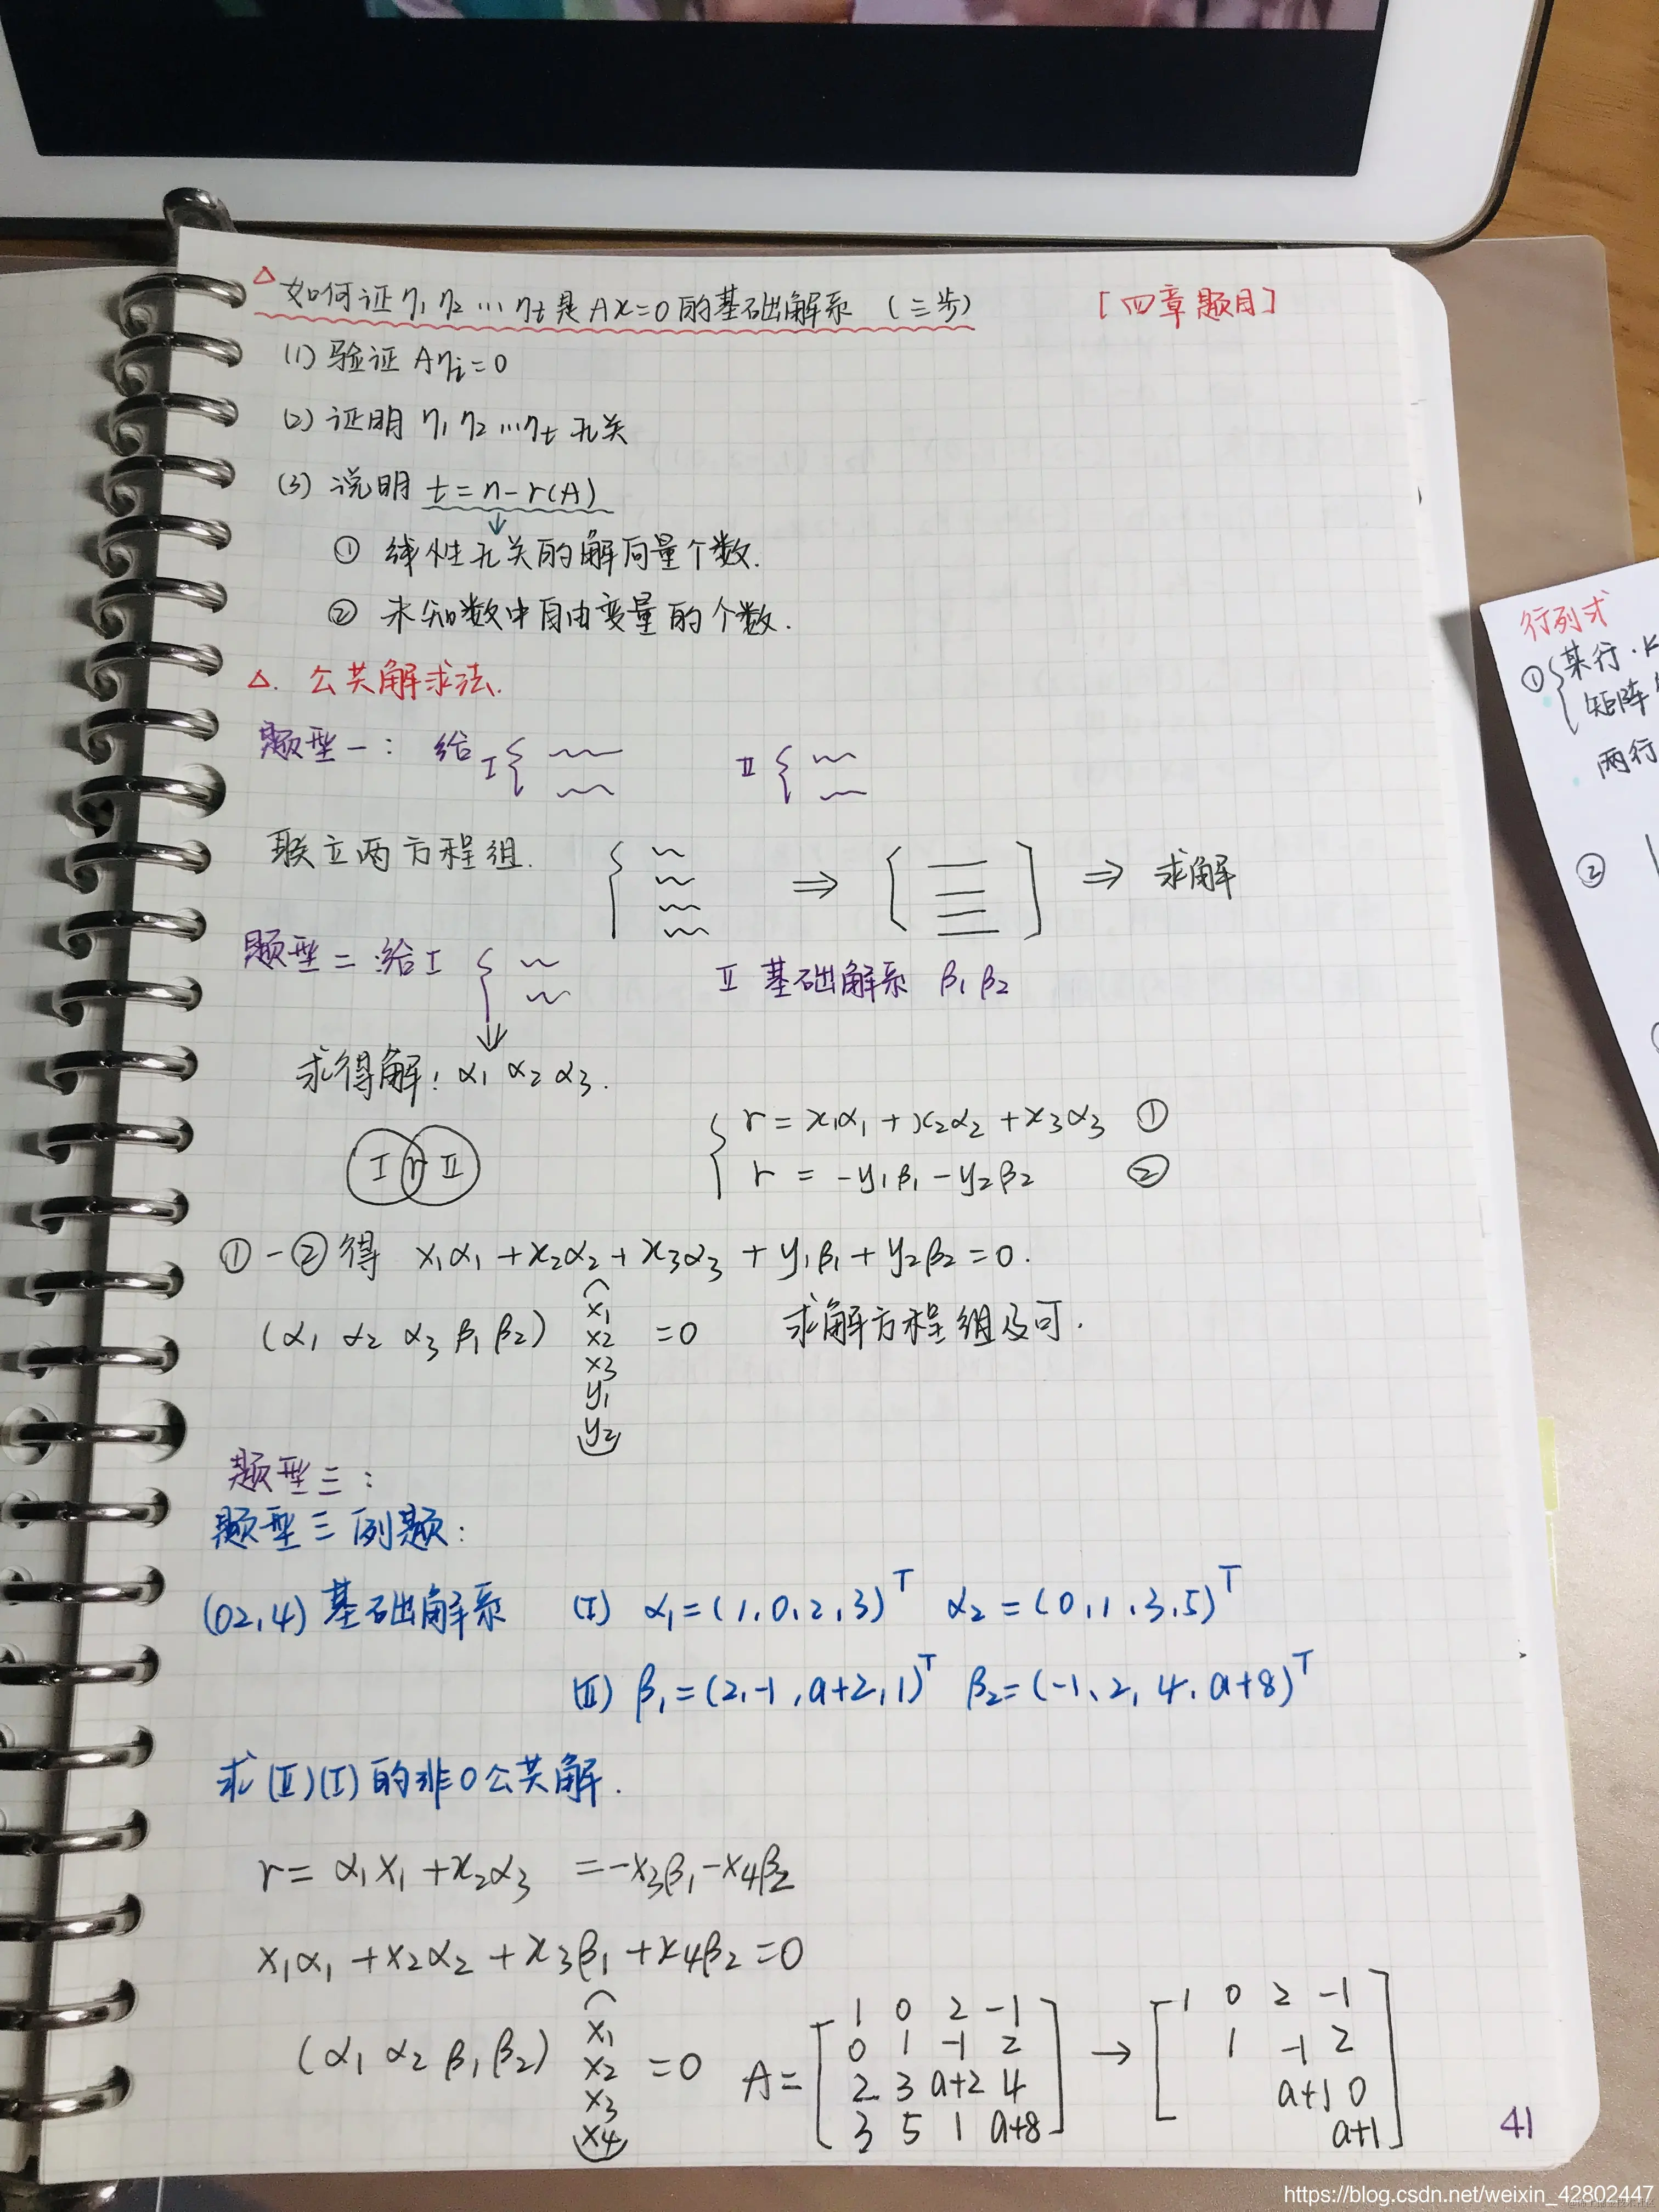 △ 如何证η₁ η₂ … ηt 是 Ax=0 的基础解系 (三步) [四章题目]
(1) 验证 Aηi=0
(2) 证明 η₁ η₂ … ηt 无关
(3) 说明 t=n-r(A)
↓
① 线性无关的解向量个数.
② 未知数中自由变量的个数.
△. 公共解求法.
题型一: 给 I { II {
联立两方程组. { ⇒ [ ] ⇒ 求解
题型二:给I { II 基础解系 β₁ β₂
↓
求得解: α₁ α₂ α₃.
I r II
{ r = x₁α₁ + x₂α₂ + x₃α₃ ①
r = -y₁β₁ - y₂β₂ ②
①-②得 x₁α₁ + x₂α₂ + x₃α₃ + y₁β₁ + y₂β₂ = 0.
(α₁ α₂ α₃ β₁ β₂) (x₁ x₂ x₃ y₁ y₂) =0 求解方程组及可.
题型三:
题型三例题:
(02,4) 基础解系 (I) α₁=(1,0,2,3)ᵀ α₂=(0,1,3,5)ᵀ
(II) β₁=(2,-1,a+2,1)ᵀ β₂=(-1,2,4,a+8)ᵀ
求(II)(I)的非0公共解.
r= α₁x₁ + x₂α₃ = -x₃β₁ - x₄β₂
x₁α₁ + x₂α₂ + x₃β₁ + x₄β₂ = 0
(α₁ α₂ β₁ β₂) (x₁ x₂ x₃ x₄) =0 A= [
1 0 2 -1
0 1 -1 2
2 3 a+2 4
3 5 1 a+8
] → [
1 0 2 -1
1 -1 2
a+1 0
a+1
]
41
行列式
① { 某行·k
矩阵
两行
②
https://blog.csdn.net/weixin_42802447